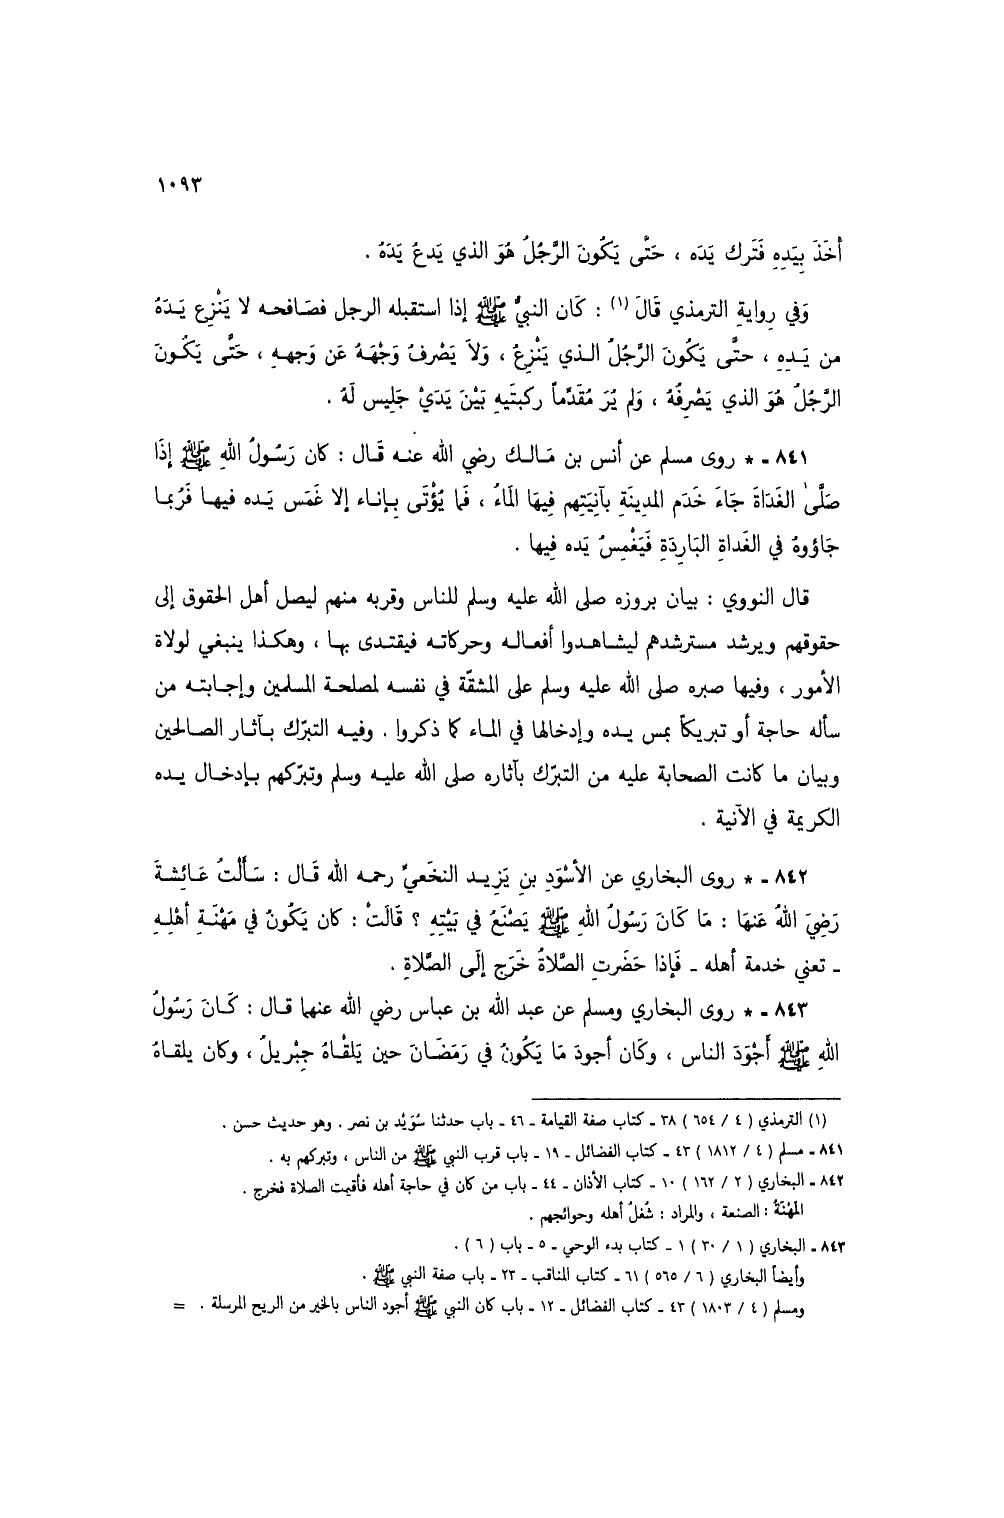 ١٠٩٣
أَخَذَ بِيَدِهِ فَتَرك يَدَه ، حَتَّى يَكُونَ الرَّجُلُ هُوَ الذي يَدعُ يَدَهُ .
وَفي رِوايةِ الترمذي قَالَ (١) : كَان النبيُّ ﷺ إذا استقبله الرجل فصَافحه لا يَنْزِع يَدَهُ
من يَدِهِ ، حتَّى يَكُونَ الرَّجُلُ الذي يَنْزِعُ ، وَلاَ يَصْرفُ وَجْهَهُ عَن وَجههِ ، حَتَّى يَكُونَ
الرَّجُلُ هُوَ الذي يَصْرِفُهُ ، وَلم يُرَ مُقَدِّماً ركبتَيهِ بَيْنَ يَدَيْ جَلِيس لَهُ .
٨٤١ - * روى مسلم عن أنس بن مَالك رضي الله عنه قَال : كان رَسُولُ اللهِ ﷺ إذَا
صَلَّىٰ الغَدَاةَ جَاءَ خَدَم المدِينَةِ بآنِيَتِهم فِيهَا المَاءُ ، فَما يُؤْتَى بِإناء إلا غَمَس يَده فيها فَرُبما
جَاؤوهُ في الغَداةِ البَارِدَةِ فَيَغْمِسُ يَده فِيها .
قال النووي : بيان بروزه صلى الله عليه وسلم للناس وقربه منهم ليصل أهل الحقوق إلى
حقوقهم ويرشد مسترشدهم ليشاهدوا أفعاله وحركاته فيقتدى بها ، وهكذا ينبغي لولاة
الأمور ، وفيها صبره صلى الله عليه وسلم على المشقّة في نفسه لمصلحة المسلمين وإجابته من
سأله حاجة أو تبريكاً بمس يده وإدخالها في الماء كما ذكروا . وفيه التبرّك بآثار الصالحين
وبيان ما كانت الصحابة عليه من التبرّك بآثاره صلى الله عليه وسلم وتبرّكهم بإدخال يده
الكريمة في الآنية .
٨٤٢ - * روى البخاري عن الأسْوَدِ بنِ يَزِيد النخَعيِّ رحمه الله قَال : سَأَلْتُ عَائِشةَ
رَضِيَ اللهُ عَنهَا : مَا كَانَ رَسُولُ اللهِ ﷺ يَصْنَعُ في بَيْتِهِ ؟ قَالَتْ : كان يَكُونُ في مَهْنَةِ أهْلِهِ
- تعني خدمة أهله - فَإذا حَضَرتِ الصَّلاةُ خَرَج إلَى الصَّلاةِ .
٨٤٣ - * روى البخاري ومسلم عن عبد الله بن عباس رضي الله عنهما قال : كَانَ رَسُولُ
اللهِ ﷺ أَجْوَدَ الناس ، وكَان أجودَ مَا يَكُونُ في رَمَضَانَ حين يَلقْاهُ جِبْريلُ ، وكان يلقاهُ
(١) الترمذي ( ٤ / ٦٥٤ ) ٣٨ - كتاب صفة القيامة - ٤٦ - باب حدثنا سُوَيْد بن نصر . وهو حديث حسن .
٨٤١ - مسلم ( ٤ / ١٨١٢ ) ٤٣ - كتاب الفضائل - ١٩ - باب قرب النبي ﷺ من الناس ، وتبركهم به .
٨٤٢ - البخاري ( ٢ / ١٦٢ ) ١٠ - كتاب الأذان - ٤٤ - باب من كان في حاجة أهله فأقيت الصلاة فخرج .
المَهْنَةُ : الصنعة ، والمراد : شُغلُ أهله وحوائجهم .
٨٤٣ - البخاري ( ١ / ٣٠ ) ١ - كتاب بدء الوحي - ٥ - باب ( ٦ ) .
وأيضاً البخاري ( ٦ / ٥٦٥ ) ٦١ - كتاب المناقب - ٢٣ - باب صفة النبي ﷺ .
ومسلم ( ٤ / ١٨٠٣ ) ٤٣ - كتاب الفضائل - ١٢ - باب كان النبي ﷺ أجود الناس بالخير من الريح المرسلة . =